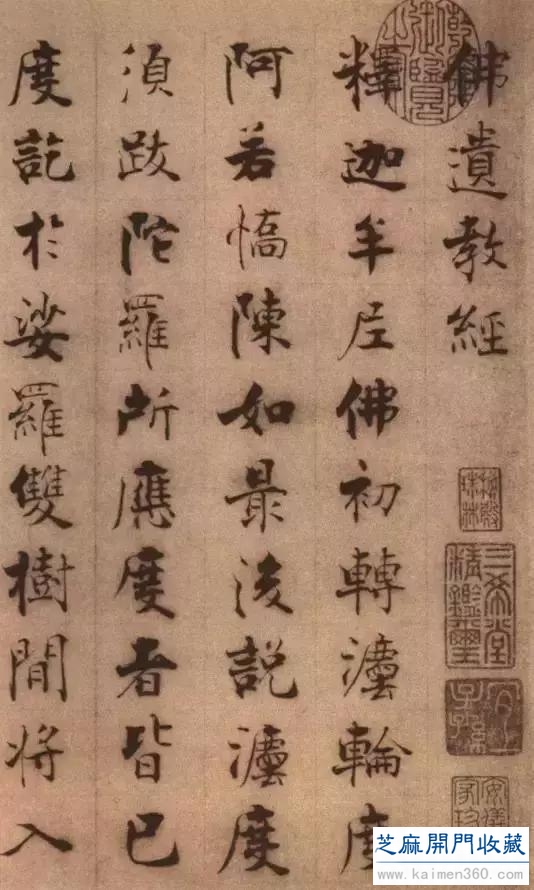 佛遺教經
釋迦牟尼佛初轉灋輪度
阿若憍陳如最後說灋度
須跋陀羅所應度者皆已
度訖於娑羅雙樹間將入
三希堂精鑑璽
宜子孫
芝麻開門收藏
www.kaimen360.com